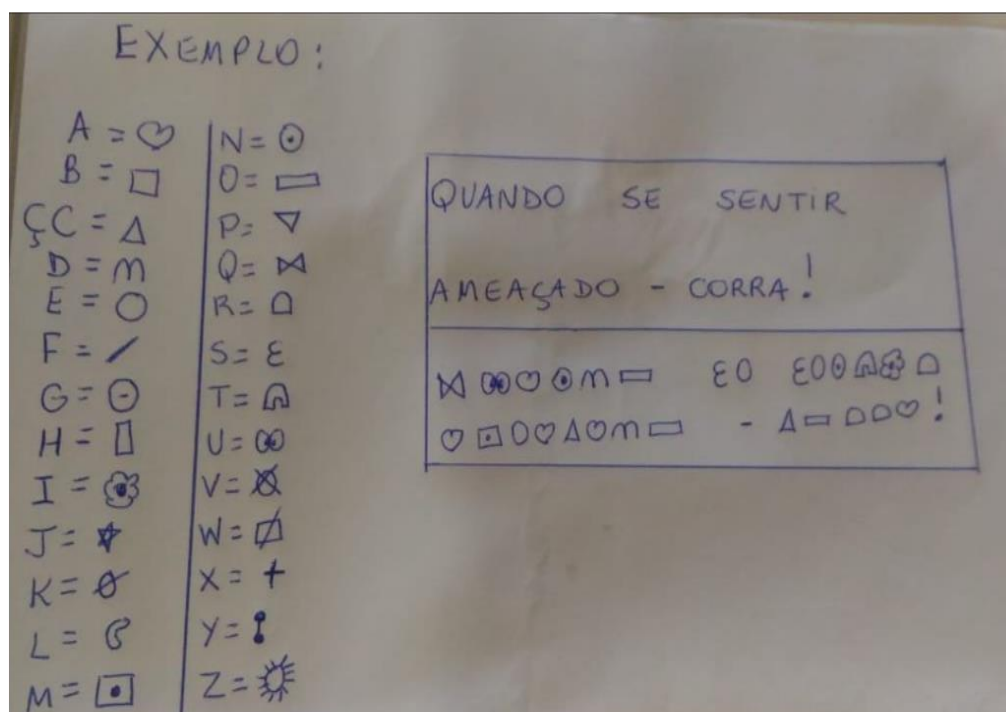 EXEMPLO:
A = ♡
B = □
ÇC = △
D = m
E = ○
F = /
G = ⊖
H = ▯
I =
J = ☆
K =
L =
M = ⊡
N = ⊙
O = ▭
P = ▽
Q = ⋈
R =
S = ε
T =
U =
V =
W =
X = +
Y =
Z =
QUANDO SE SENTIR
AMEAÇADO - CORRA!